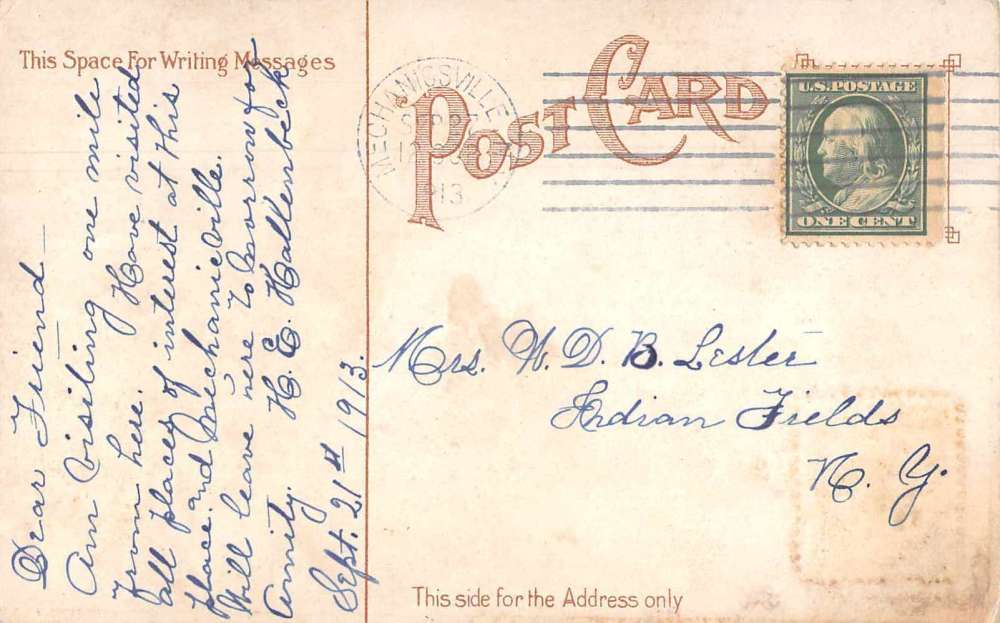 This Space For Writing Messages
Dear Friend
Am visiting one mile
from here. Have visited
all places of interest at this
place and Mechanicville.
Will leave here to morrow for
Amity. H. E. Hallenbeck
Sept. 21st 1913.
POST CARD
MECHANICSVILLE
SEP 2
1913
U.S. POSTAGE
ONE CENT
Mrs. W. D. B. Lester
Indian Fields
N. Y.
This side for the Address only